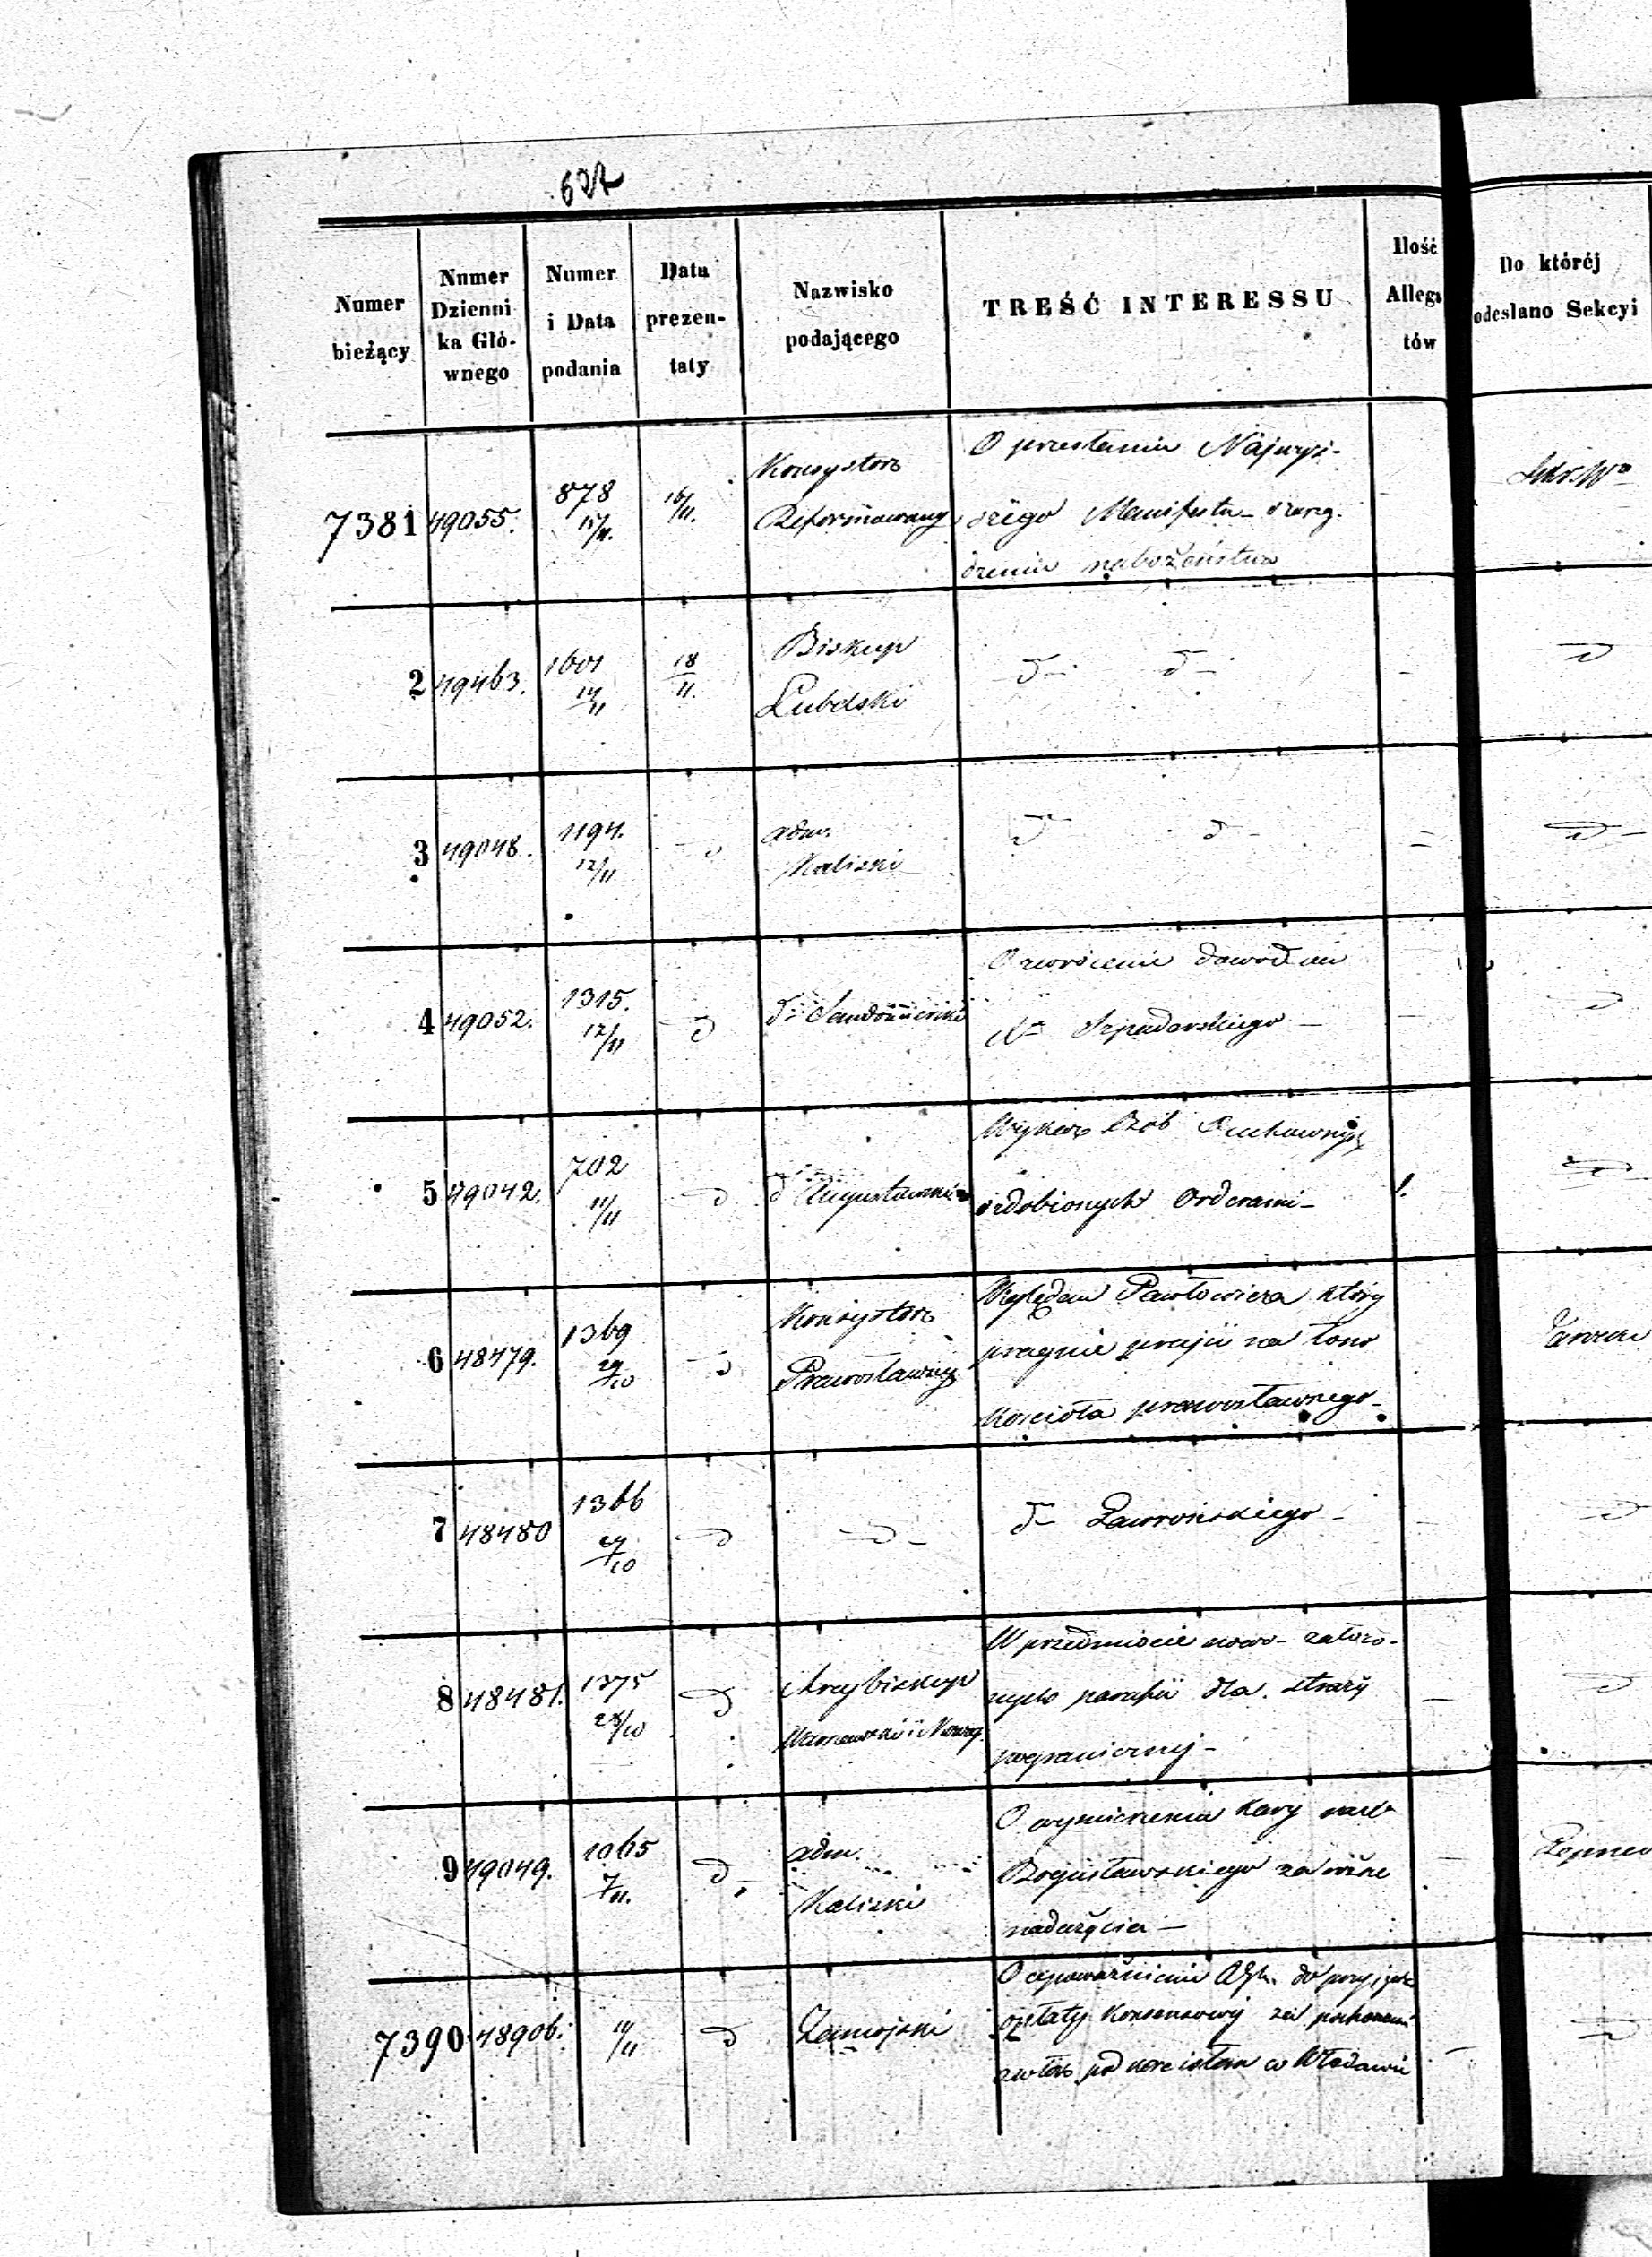 627
Numer bieżący
Numer Dzienni- ka Głó- wnego
Numer i Data podania
Data prezen- taty
Nazwisko podającego
TREŚĆ INTERESSU
Ilość Allega tów
Do któréj odesłano Sekcyi
7381 49055. 878 15/11. 16/11. Konsystorz Reformowany
O przesłaniu Najwyż-
szego Manifestu
dzeniu nabożeństwa
2 49463. 1601 14/11 18/11. Biskup Lubelski d– d– d
3 49048. 1194. 12/11 d adm. Kaliski d d – d –
4 49052. 1315. 12/11 d d– Sandomierski
O zwrócenie dowodów
Xa Szpadarskiego – d
5 49042. 702 11/11 d d Augustowski
Wykaz Osób Duchownych
ozdobionych Orderami – 1. d
6 48479. 1369 29/10 d Konsystorz Prawosławny
Względem Pawłowicza który
pragnie przejść na łono
Kościoła prawosławnego –
7 48480 1366 29/10 d d –
d– Ławrońskiego – d
8 48481. 1375 28/10 d Arcybiskup Warszawski i Nowog.
W przedmiocie nowo- założo-
nych parafii dla straży
pogranicznej – d
9 49049. 1065 7/11. d – adm. Kaliski
O wymierzenia kary
Bogusławskiego za różne
nadużycia –
7390 48906. 11/11 d Zamojski
O upoważnienie do
opłaty konsensowej za pochowanie
zwłok pod kościołem w Włodawie d